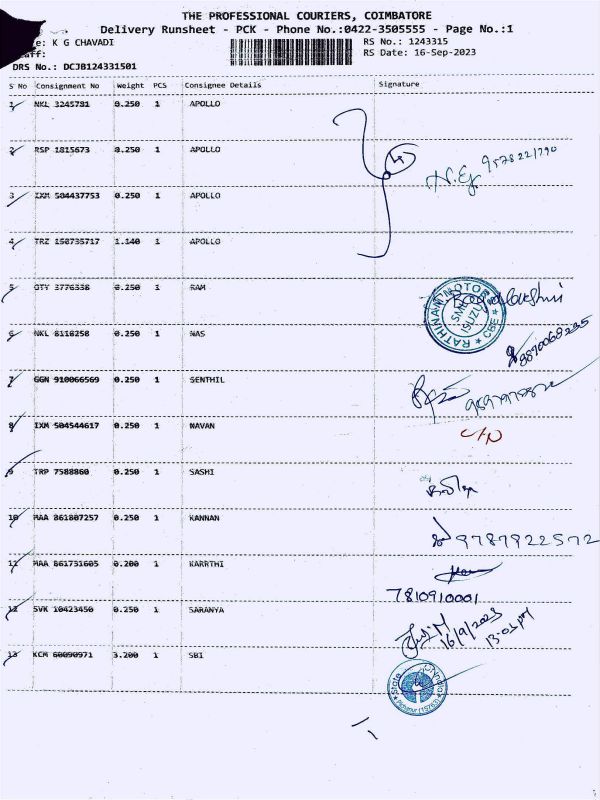 THE PROFESSIONAL COURIERS, COIMBATORE
Delivery Runsheet - PCK - Phone No.:0422-3505555 - Page No.:1
e: K G CHAVADI RS No.: 1243315
aff: RS Date: 16-Sep-2023
DRS No.: DCJB124331501
S No Consignment No Weight PCS Consignee Details Signature
1 NKL 3245781 0.250 1 APOLLO
2 RSP 1815673 0.250 1 APOLLO
4
3 IXM 504437753 0.250 1 APOLLO
4 TRZ 150735717 1.140 1 APOLLO
5 OTY 3776338 0.250 1 RAM
RATHINAM MOTOR
CBE
6 NKL 8116258 0.250 1 NAS
7 GGN 910066569 0.250 1 SENTHIL
8 IXM 504544617 0.250 1 NAVAN
9 TRP 7588860 0.250 1 SASHI
10 MAA 861807257 0.250 1 KANNAN
9787922572
11 MAA 861731605 0.200 1 KARRTHI
7810910001
12 SVK 10423450 0.250 1 SARANYA
16/9/2023
13 KCM 60090971 3.200 1 SBI
State